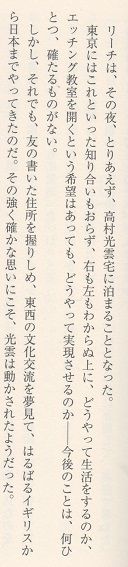 リーチは、その夜、とりあえず、高村光雲宅に泊まることとなった。
東京にはこれといった知り合いもおらず、右も左もわからぬ上に、どうやって生活をするのか、
エッチング教室を開くという希望はあっても、どうやって実現させるのか――今後のことは、何ひ
とつ、確たるものがない。
しかし、それでも、友の書いた住所を握りしめ、東西の文化交流を夢見て、はるばるイギリスか
ら日本までやってきたのだ。その強く確かな思いにこそ、光雲は動かされたようだった。